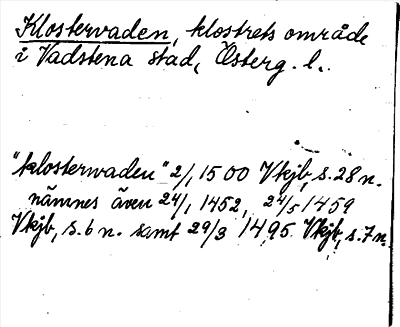 Klostervaden, klostrets område
i Vadstena stad, Österg. l.
"klosterwaden" 2/1 1500 Vkjb, s. 28 n.
nämnes även 24/1 1452, 24/5 1459
Vkjb, s. 6 n. samt 29/3 1495 Vkjb, s. 7 n.